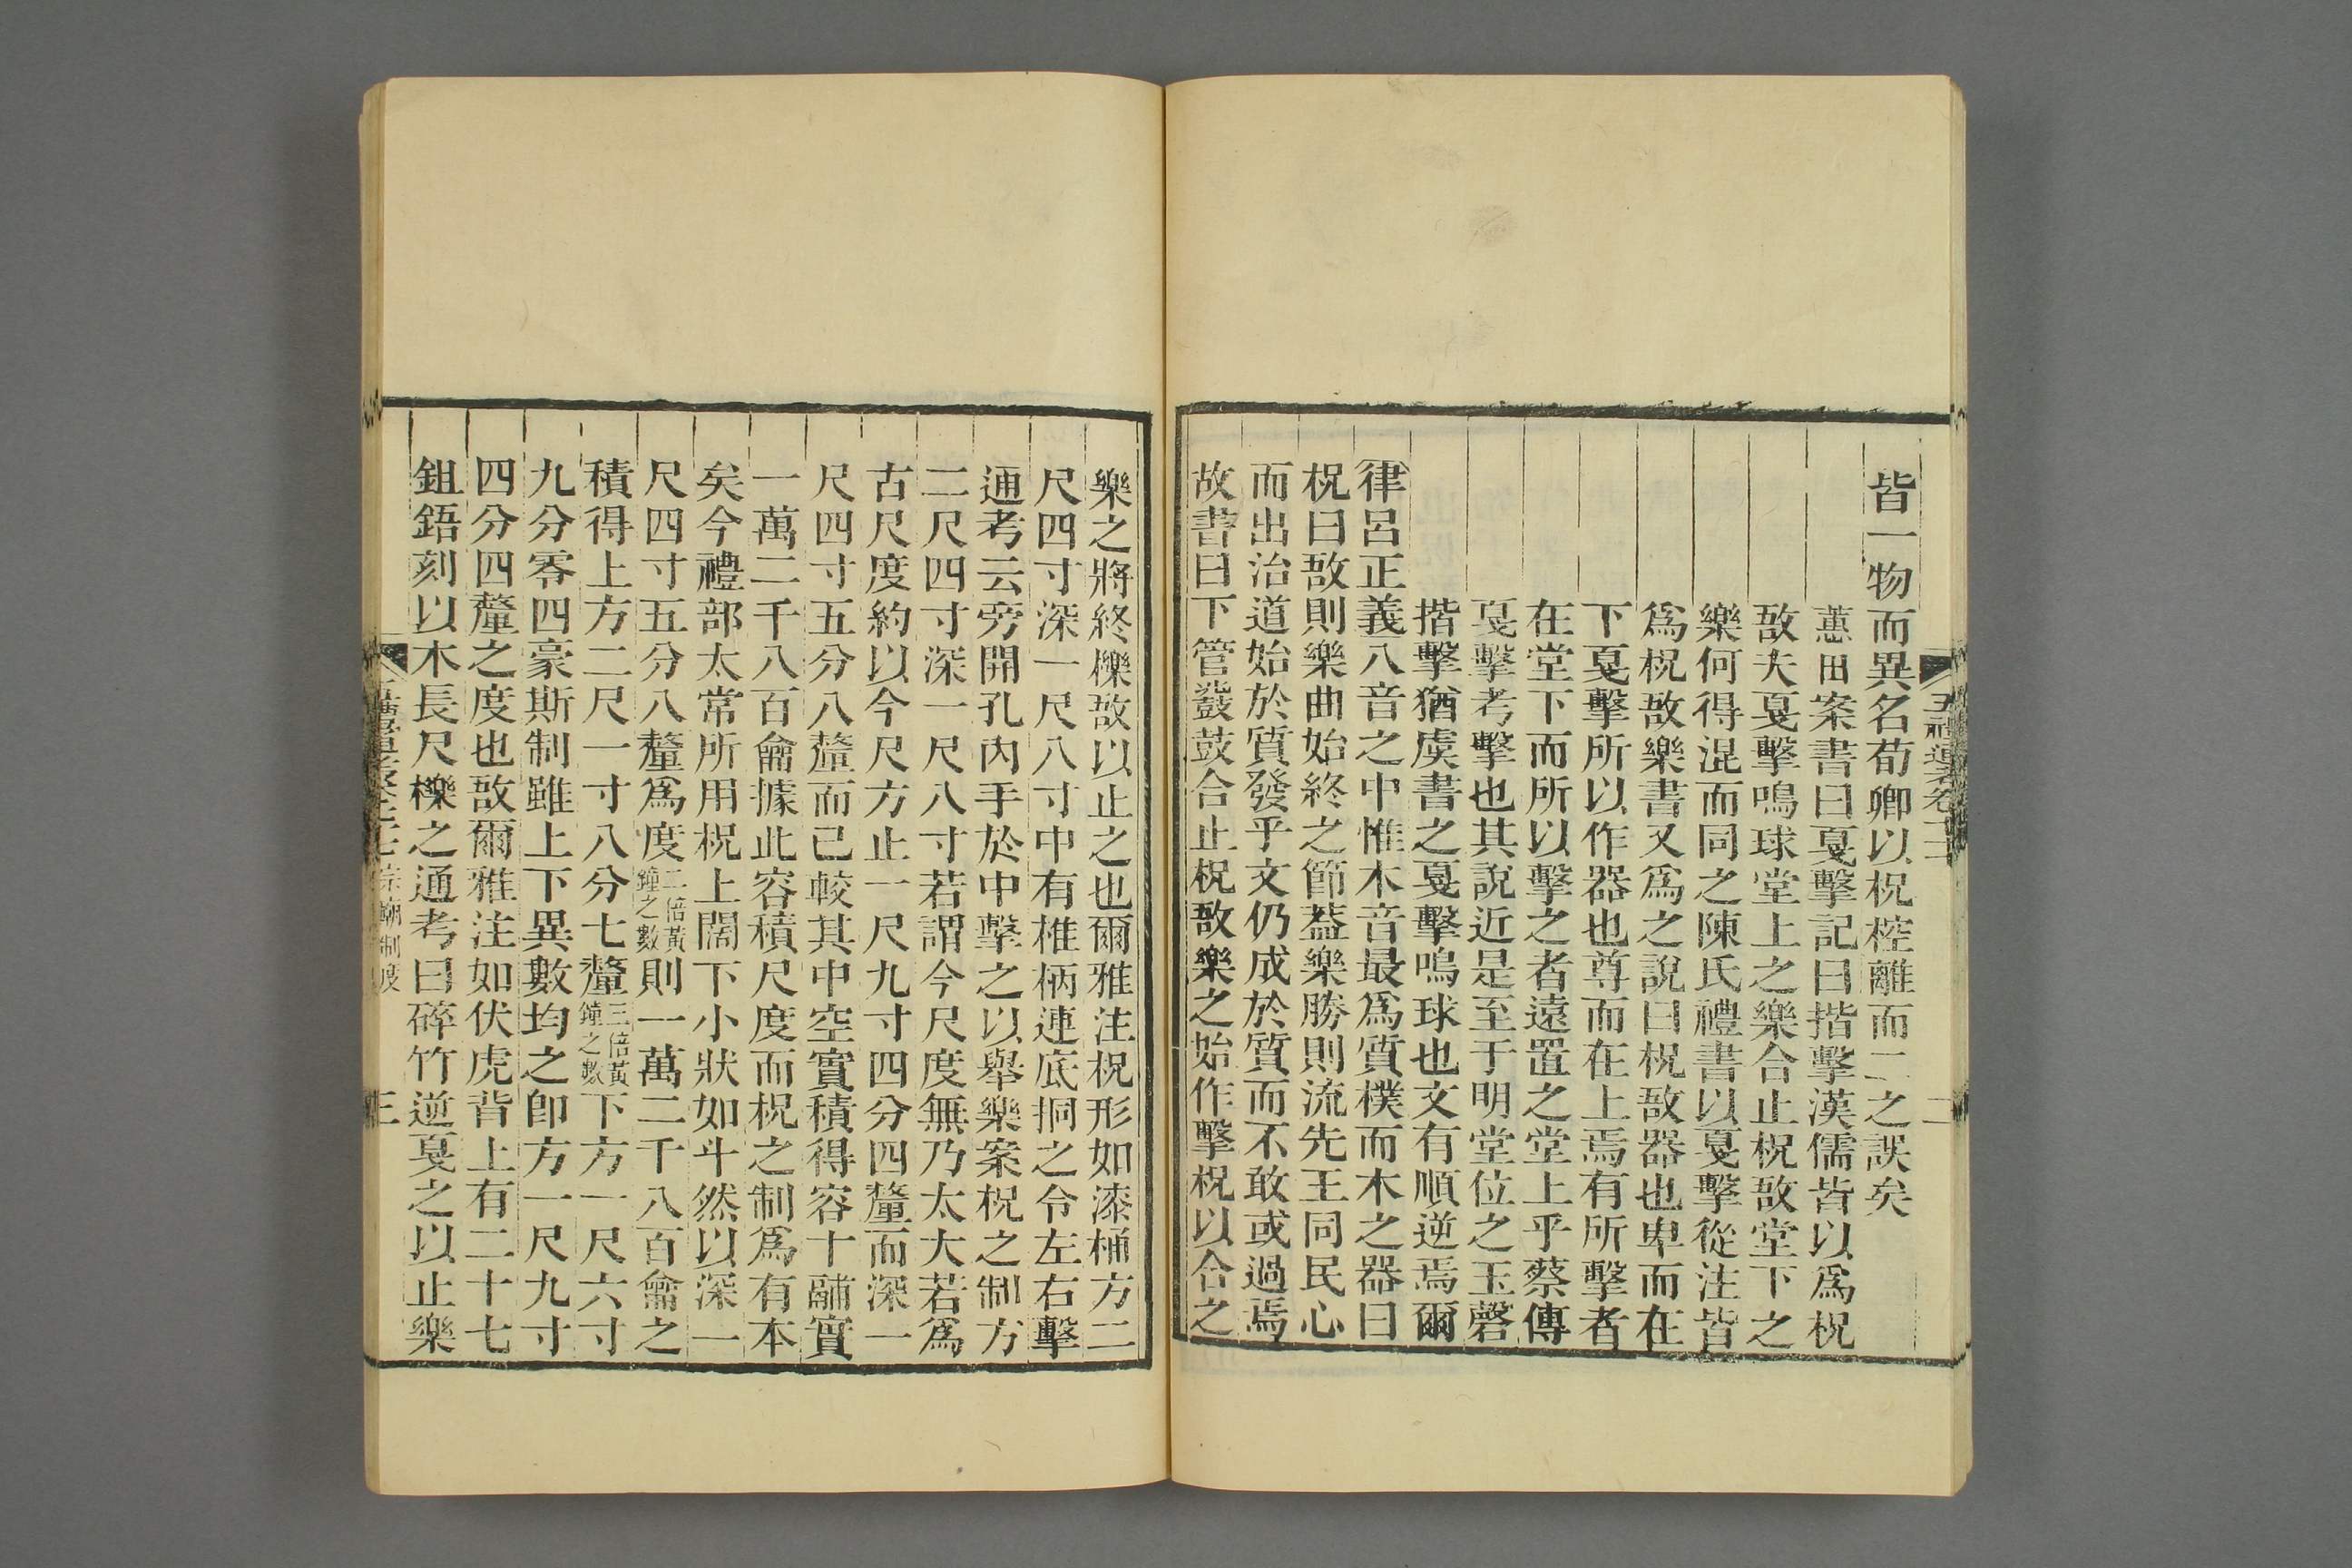 皆一物而異名荀卿以柷椌離而二之誤矣
蕙田案書曰戛擊記曰揩擊漢儒皆以爲柷
敔夫戛擊鳴球堂上之樂合止柷敔堂下之
樂何得混而同之陳氏禮書以戛擊從注皆
爲柷敔樂書又爲之說曰柷敔器也卑而在
下戛擊所以作器也尊而在上焉有所擊者
在堂下而所以擊之者遠置之堂上乎蔡傳
戛擊考擊也其說近是至于明堂位之玉磬
揩擊猶虞書之戛擊鳴球也文有順逆焉爾
律呂正義八音之中惟木音最爲質樸而木之器曰
柷曰敔則樂曲始終之節葢樂勝則流先王同民心
而出治道始於質發乎文仍成於質而不敢或過焉
故書曰下管鼗鼓合止柷敔樂之始作擊柷以合之
樂之將終櫟敔以止之也爾雅注柷形如漆桶方二
尺四寸深一尺八寸中有椎柄連底挏之令左右擊
通考云旁開孔內手於中擊之以舉樂案柷之制方
二尺四寸深一尺八寸若謂今尺度無乃太大若爲
古尺度約以今尺方止一尺九寸四分四釐而深一
尺四寸五分八釐而已較其中空實積得容十鬴實
一萬二千八百龠據此容積尺度而柷之制爲有本
矣今禮部太常所用柷上闊下小狀如斗然以深一
尺四寸五分八釐爲度二倍黃鐘之數則一萬二千八百龠之
積得上方二尺一寸八分七釐三倍黃鐘之數下方一尺六寸
九分零四豪斯制雖上下異數均之卽方一尺九寸
四分四釐之度也敔爾雅注如伏虎背上有二十七
鉏鋙刻以木長尺櫟之通考曰碎竹逆戛之以止樂